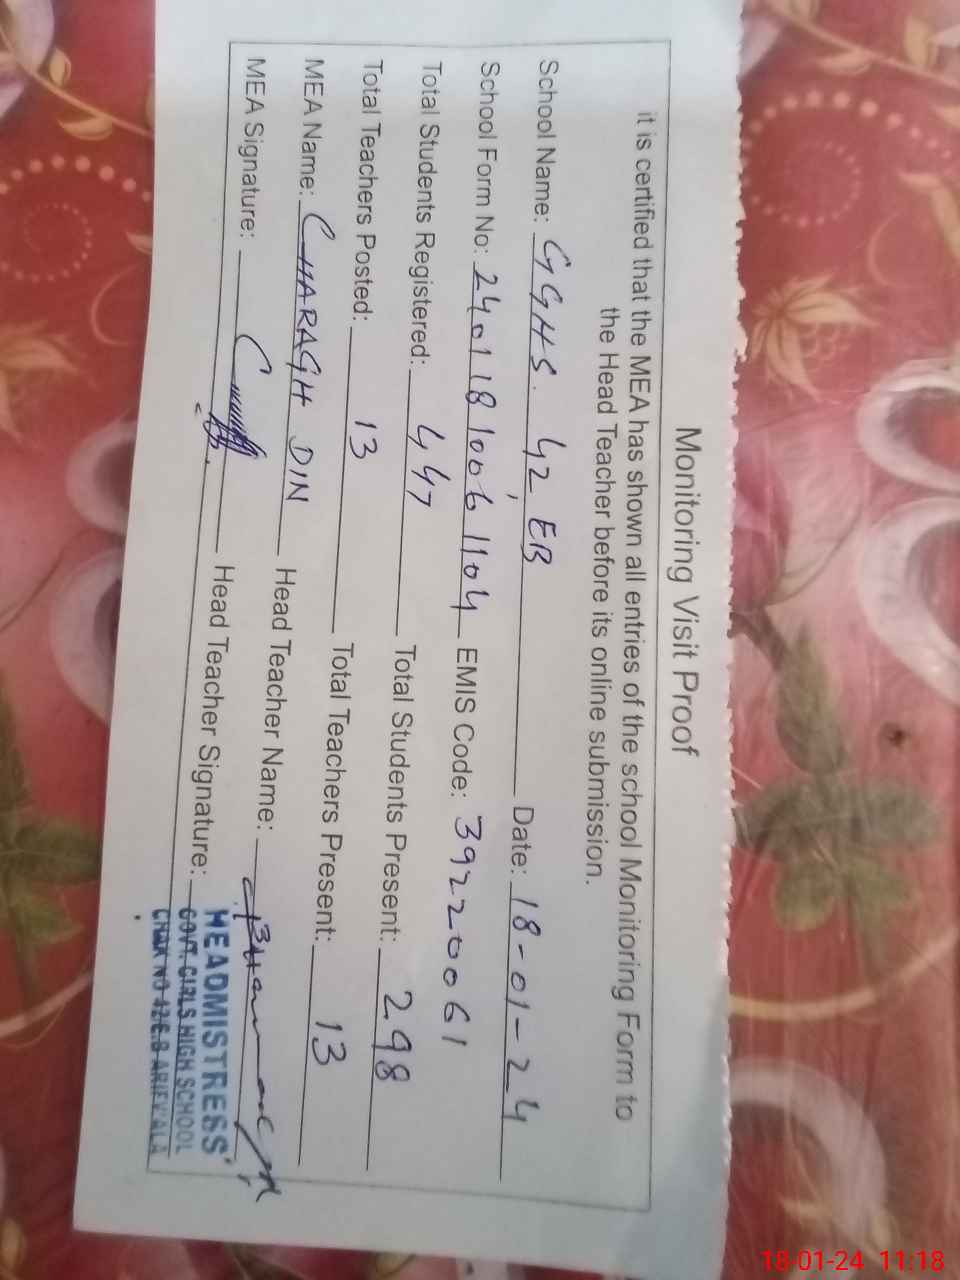 Monitoring Visit Proof
it is certified that the MEA has shown all entries of the school Monitoring Form to
the Head Teacher before its online submission.
School Name: GGHS. 42 EB Date: 18-01-24
School Form No: 24011810061104 EMIS Code: 39220061
Total Students Registered: 447 Total Students Present: 298
Total Teachers Posted: 13 Total Teachers Present: 13
MEA Name: CHARAGH DIN Head Teacher Name:
MEA Signature: Head Teacher Signature:
HEADMISTRESS
GOVT. GIRLS HIGH SCHOOL
CHAK NO 42 E.B ARIFWALA
18-01-24 11:18